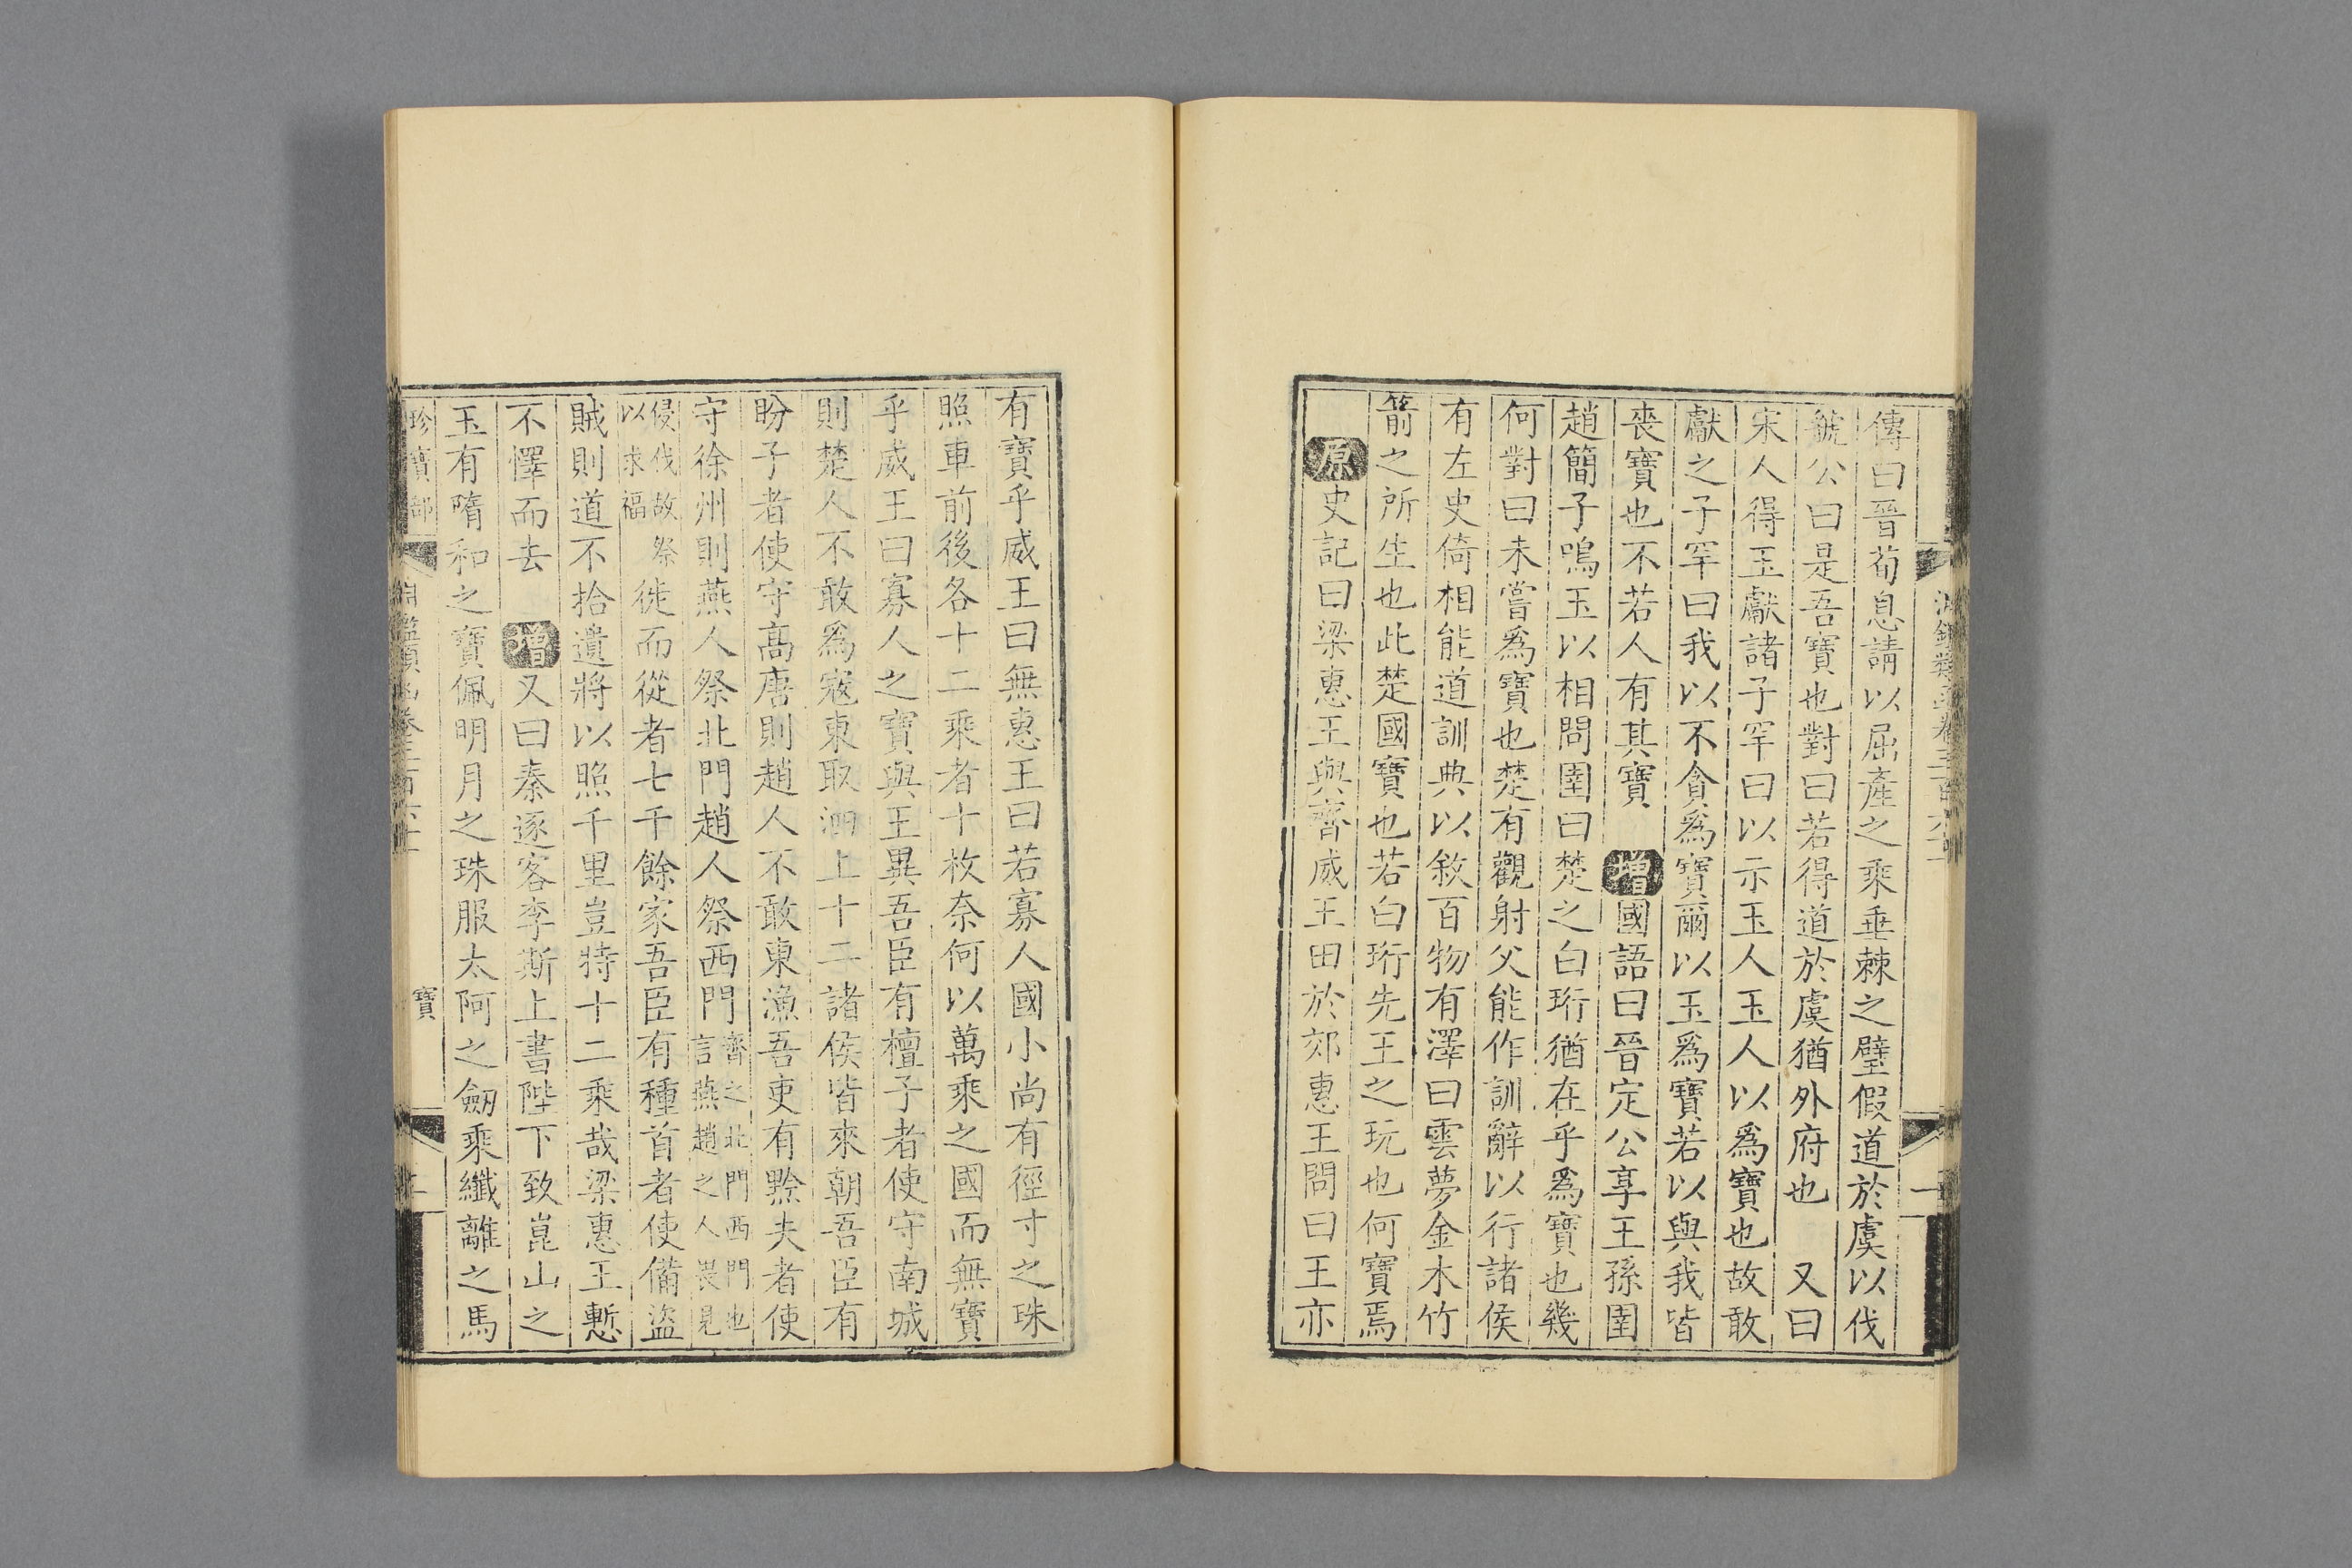 傳曰晉荀息請以屈產之乘垂棘之璧假道於虞以伐
虢公曰是吾寶也對曰若得道於虞猶外府也　又曰
宋人得玉獻諸子罕曰以示玉人玉人以爲寶也故敢
獻之子罕曰我以不貪爲寶爾以玉爲寶若以與我皆
喪寶也不若人有其寶　增國語曰晉定公享王孫圉
趙簡子鳴玉以相問圉曰楚之白珩猶在乎爲寶也幾
何對曰未嘗爲寶也楚有觀射父能作訓辭以行諸侯
有左史倚相能道訓典以敘百物有澤曰雲夢金木竹
箭之所生也此楚國寶也若白珩先王之玩也何寶焉
原史記曰梁惠王與齊威王田於郊惠王問曰王亦
有寶乎威王曰無惠王曰若寡人國小尚有徑寸之珠
照車前後各十二乘者十枚奈何以萬乘之國而無寶
乎威王曰寡人之寶與王異吾臣有檀子者使守南城
則楚人不敢爲寇東取泗上十二諸侯皆來朝吾臣有
盼子者使守高唐則趙人不敢東漁吾吏有黔夫者使
守徐州則燕人祭北門趙人祭西門齊之北門西門也
言燕趙之人畏見
侵伐故祭
以求福
徙而從者七千餘家吾臣有種首者使備盜
賊則道不拾遺將以照千里豈特十二乘哉梁惠王慙
不懌而去　增又曰秦逐客李斯上書陛下致崑山之
玉有隋和之寶佩明月之珠服太阿之劒乘纖離之馬
珍寶部
寶
二